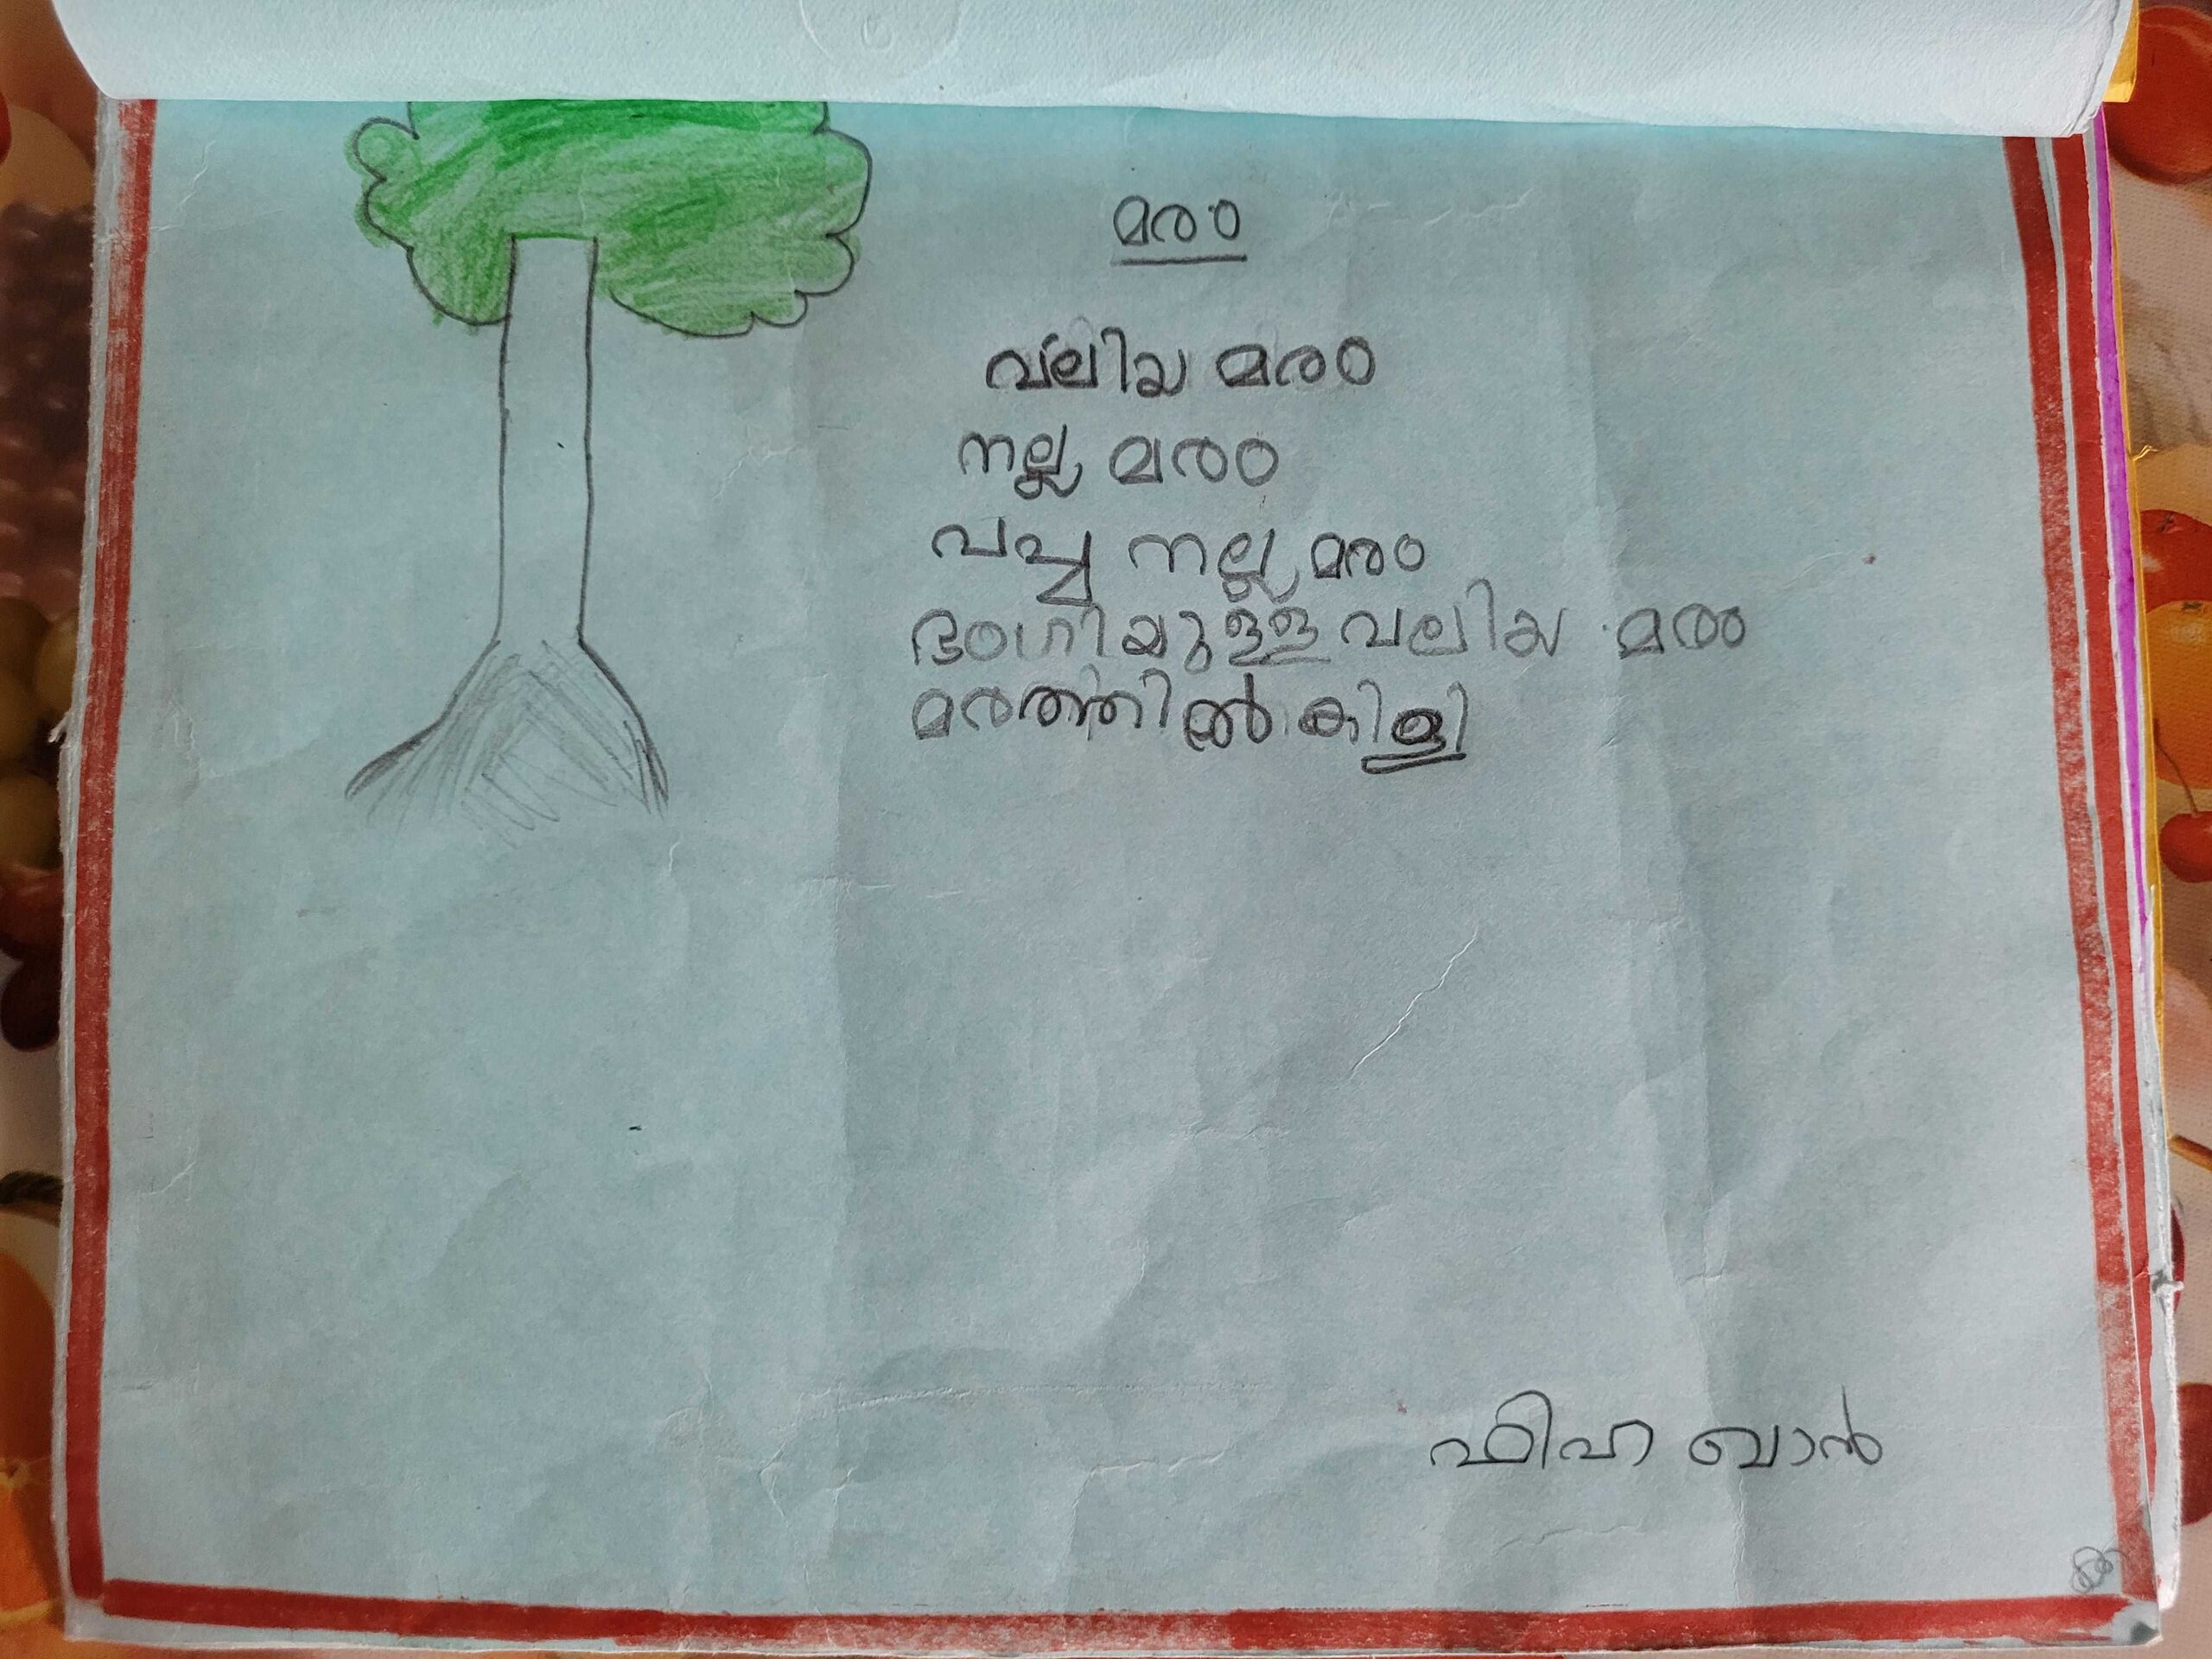 മരം
വലിയ മരം
നല്ല മരം
പച്ച നല്ല മരം
ഭംഗിയുള്ള വലിയ മരം
മരത്തിൽ കിളി
ഫിഹ ഖാൻ